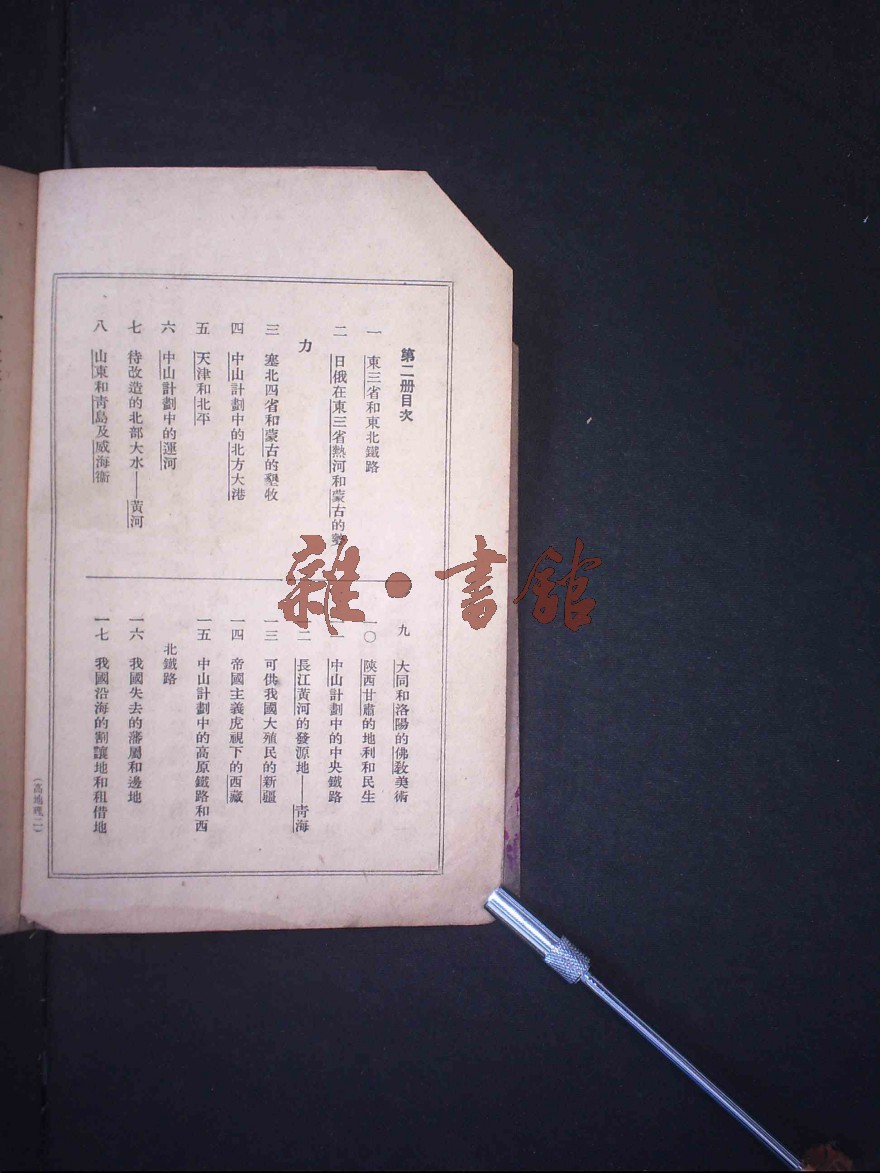 第二册目次
一　東三省和東北鐵路
二　日俄在東三省熱河和蒙古的勢
力
三　塞北四省和蒙古的墾牧
四　中山計劃中的北方大港
五　天津和北平
六　中山計劃中的運河
七　待改造的北部大水——黃河
八　山東和青島及威海衞
九　大同和洛陽的佛敎美術
一〇　陝西甘肅的地利和民生
一一　中山計劃中的中央鐵路
一二　長江黃河的發源地——青海
一三　可供我國大殖民的新疆
一四　帝國主義虎視下的西藏
一五　中山計劃中的高原鐵路和西
北鐵路
一六　我國失去的藩屬和邊地
一七　我國沿海的割讓地和租借地
（高地理二）
雜·書館